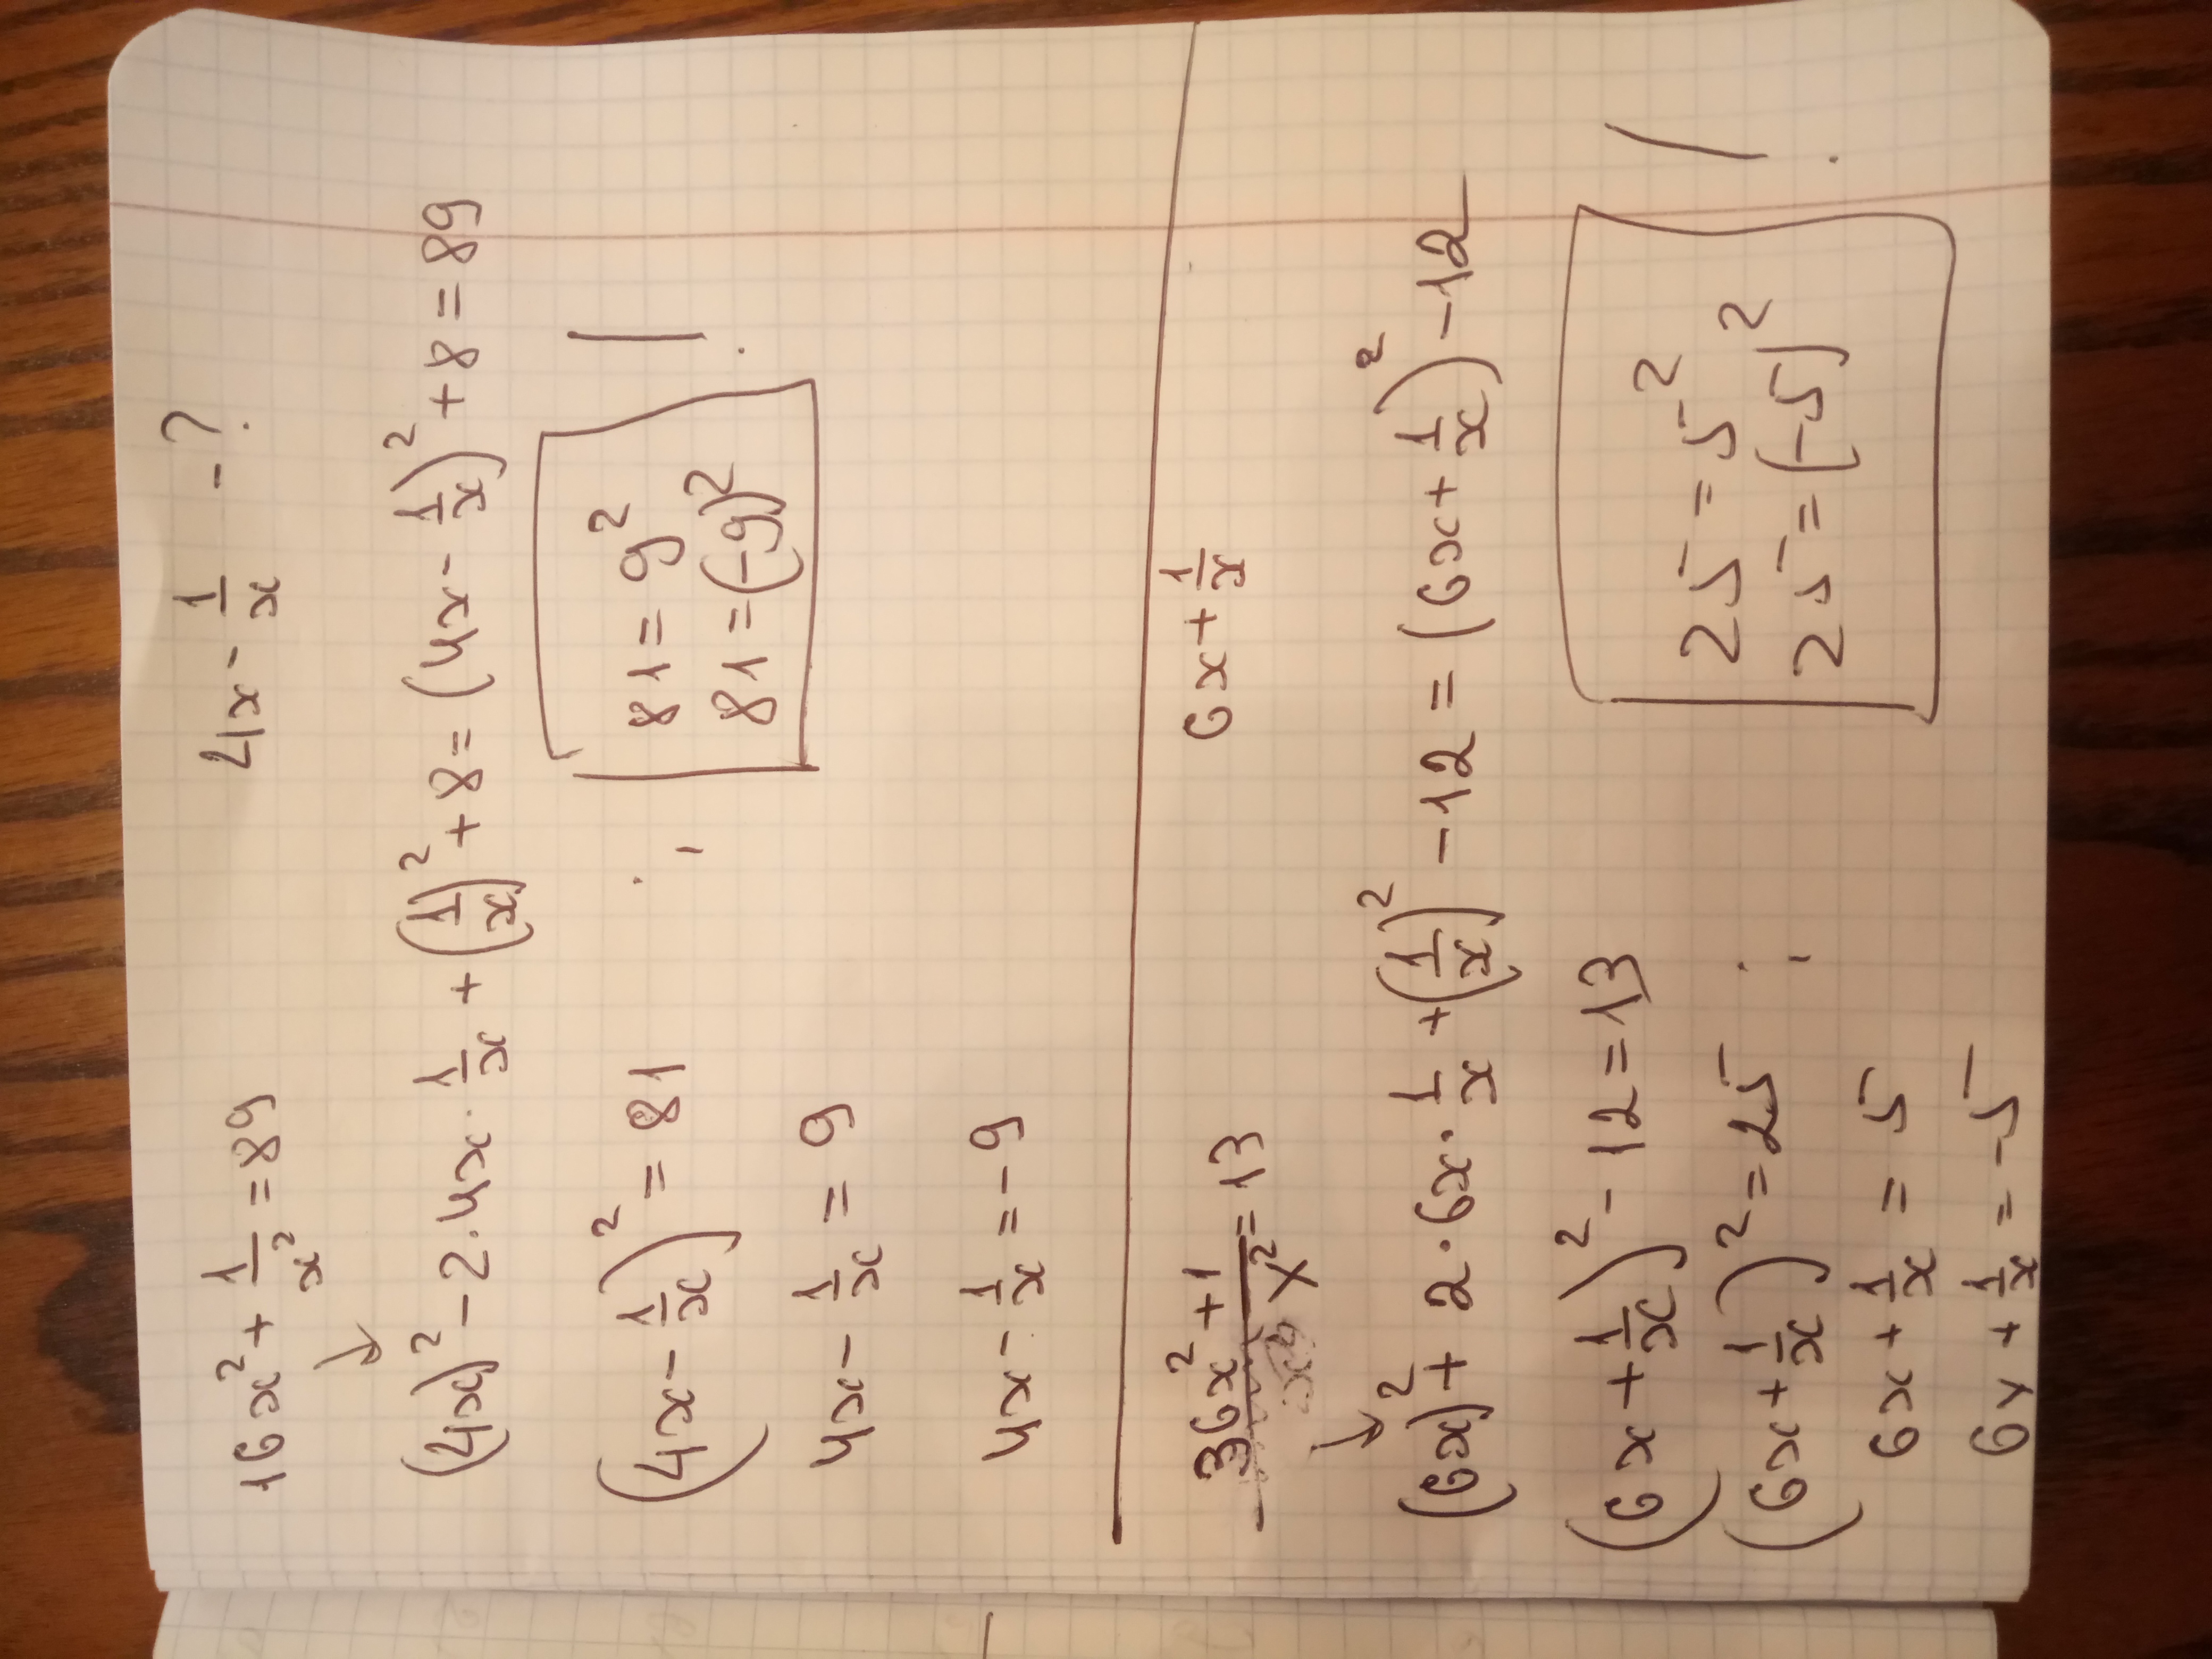 16x² + 1/x² = 89    4x - 1/x - ?
(4x)² - 2·4x·1/x + (1/x)² + 8 = (4x - 1/x)² + 8 = 89
(4x - 1/x)² = 81
81 = 9²
81 = (-9)²
!
4x - 1/x = 9
4x - 1/x = -9
36x² + 1/x² = 13    6x + 1/x
(6x)² + 2·6x·1/x + (1/x)² - 12 = (6x + 1/x)² - 12
(6x + 1/x)² - 12 = 13
(6x + 1/x)² = 25
25 = 5²
25 = (-5)²
!
6x + 1/x = 5
6x + 1/x = -5